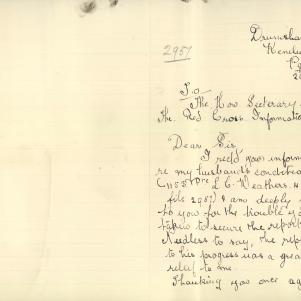 Drumsha
Kendu
2951
To
The Hon Secretary
The Red Cross Informatio
Dear Sir
I recd your inform
re my husbands condition
L. C. Weathers. H
file 2951) & am deeply
to you for the trouble yo
taken to secure the report
Needless to say, the rep
to his progress was a grea
relief to me.
Thanking you once ag